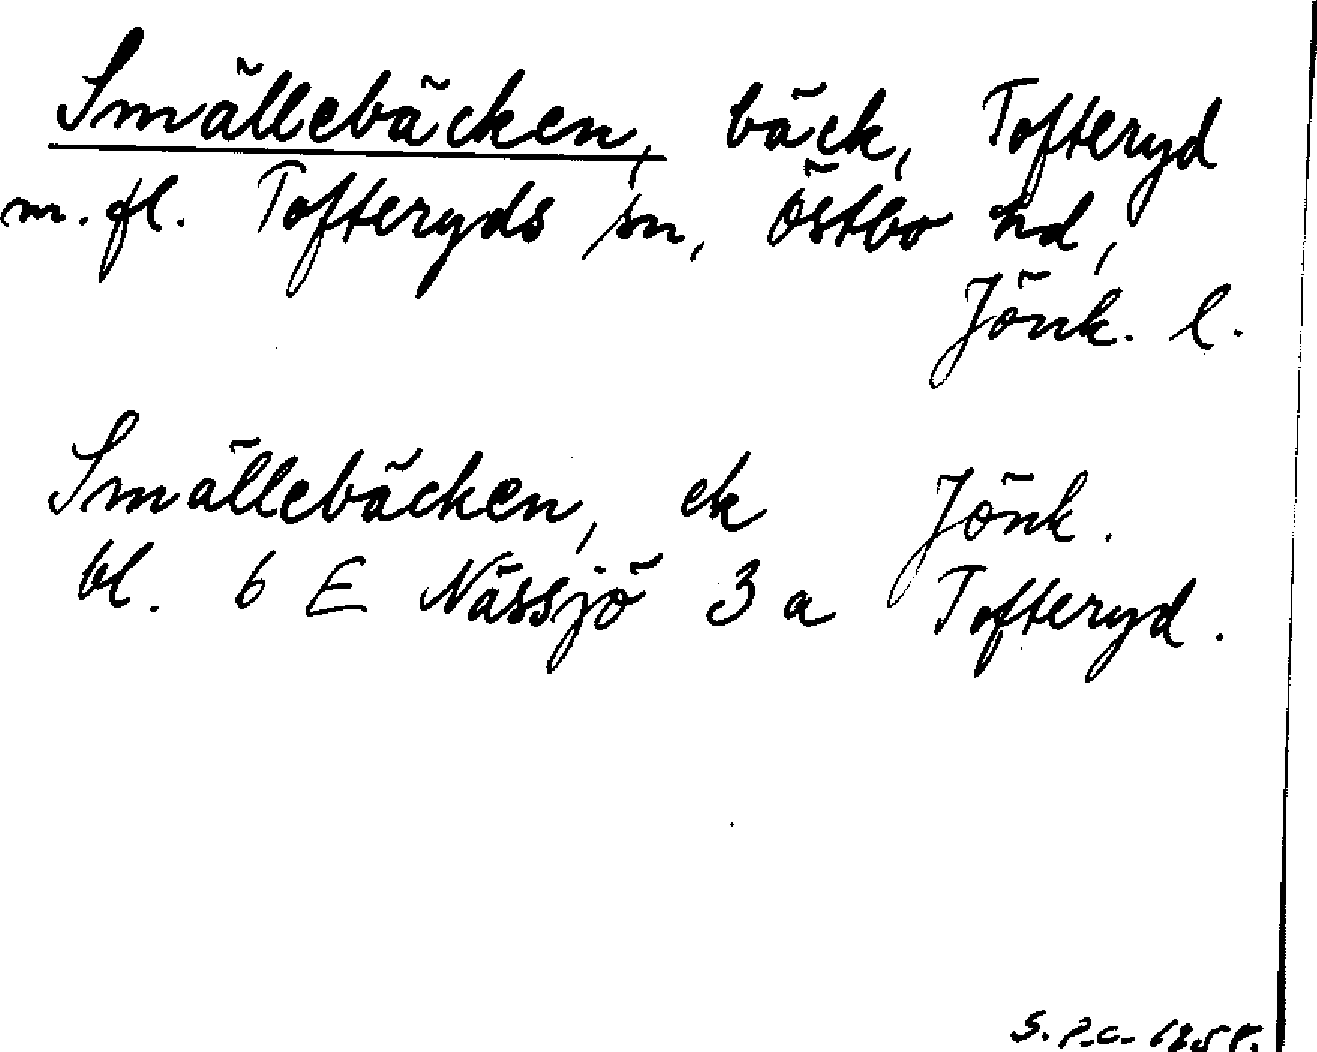 Smällebäcken, bäck, Tofteryd
m. fl. Tofteryds sn, Östbo hd,
Jönk. l.
Smällebäcken, ek Jönk.
bl. 6 E Nässjö 3 a Tofteryd.